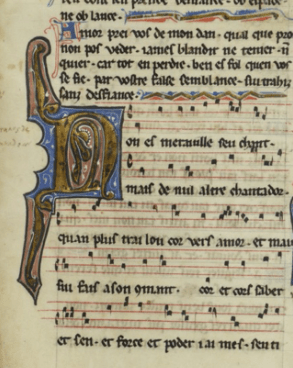 ne ob lance.
Amor prei vos de mon dan. qual que pro
non pos veder. iames blandir ne temer. n
quier. car tot en perdre. ben es fol quen vos
se fie. par vostre false semblance. sui trahiz
sanz desfiance.
Non es meraville seu chant.
mais de nul altre chantador.
quan plus trai lou cor vers amor. et mau
sui fais a son comant. cor et cors saber
et sen. et force et poder i ai mes. sen ti